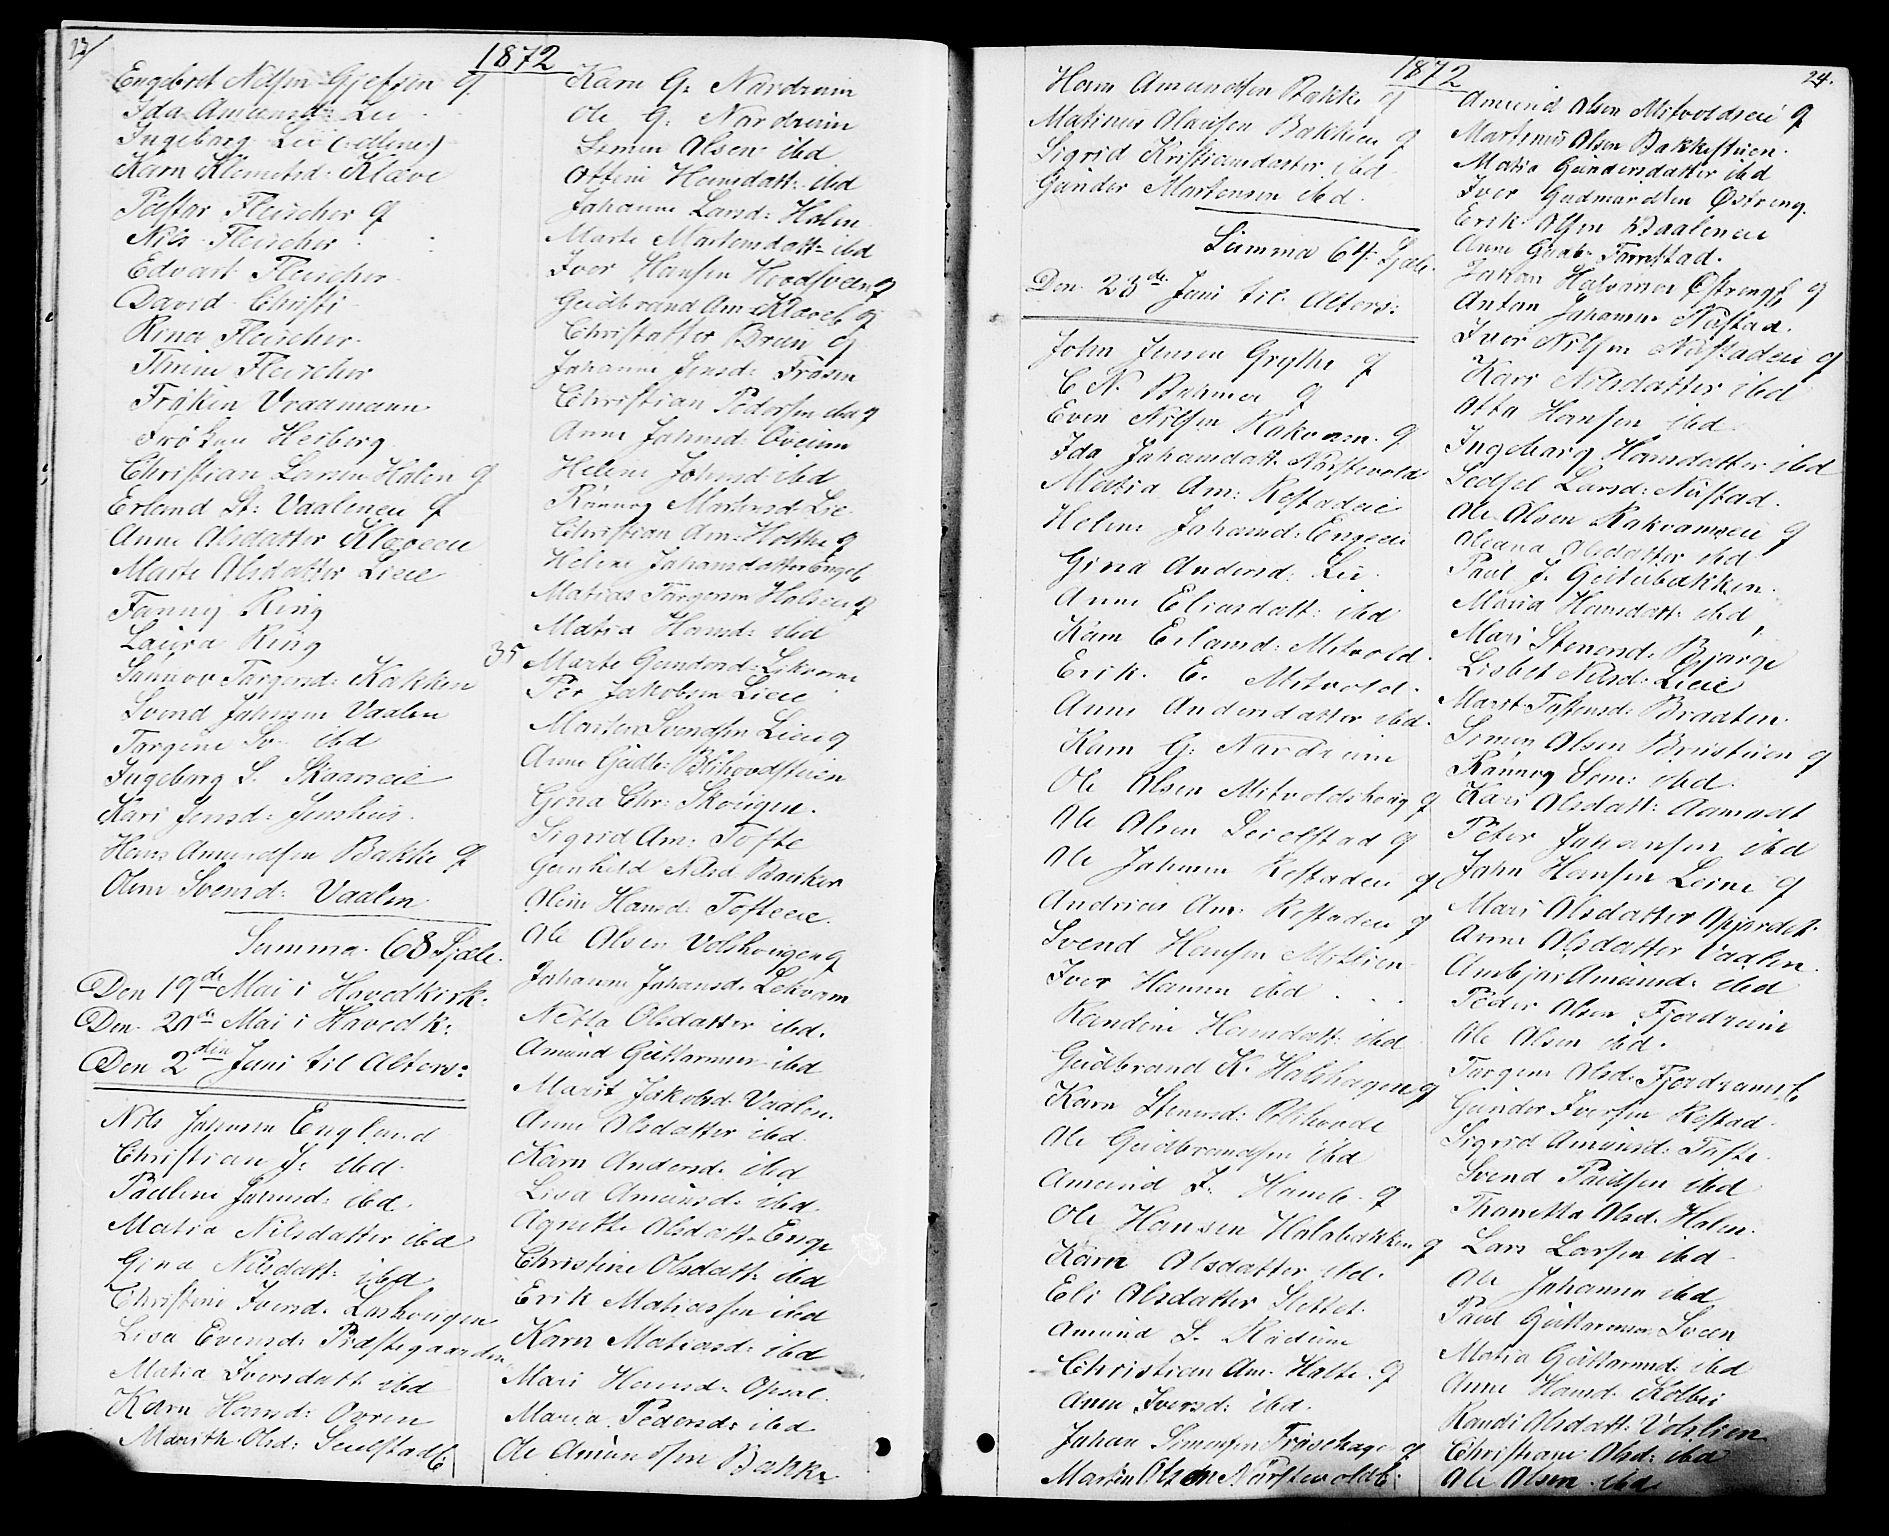 23/
1872
Engebret Nelsen Gjefsen q
Ida Amunds: Lie
Ingeborg Lie
Karn Klemetsd: Klæve
Pastor Fleischer q
Nils Fleischer
Edvart Fleischer
David Christi
Rina Fleischer
Thrine Fleischer
Frøken Vraamann
Frøken Heiberg
Christian Larsen Halen q
Erland St: Vaalenei q
Anne Olsdatter Klæveeie
Marte Olsdatter Lieie
Fanny Ring
Laura Ring
Sünnov Targersd: Kakken
Svend Jahnsen Vaalen
Targine Sv. ibd
Ingeborg S. Skaarseie
Kari Jensd: Jenshus
Hans Amundsen Bakke q
Olene Svensd: Vaalen
Summa 68 Sjæle
Den 19de Mai i Hovedkirk:
Den 20de Mai i Hovedk:
Den 2den Juni til Alters:
Nils Johnsen England
Christian J. ibd
Pauline Johnsd: ibd
Matia Nilsdatter ibd
Gina Nilsdatt: ibd
Christine Iversd: Larshougen
Lisa Evensd: Præstegaarden
Matia Iversdatt ibd
Karn Hansd: Ovren
Marith Olsd: Seielstadb
Karn G. Nordrum
Ole G. Nordrum
Simen Olsen ibd
Ottine Hansdatt: ibd
Johanne Larsd: Holen
Marte Martensdatt: ibd
Iver Hansen Hovdsveen q
Gudbrand Am: Klæveb q
Christoffer Bræn q
Johanne Jensd: Frøsen
Christian Pedersen ibd q
Anne Johnsd: Oveium
Helene Johnsd ibd
Rønnog Mortensd: Lie
Christian Am: Holthe q
Helene Johansdatter Engeb
Matias Targersen Holseie q
Matia Hansd: ibd
35 Marte Gundersd: Likvern
Per Jakobsen Lieie
Morten Svendsen Lieie q
Anne Gudb: Blihovdstuen
Gina Chr: Skougen
Sigrid Am: Tofte
Gunhild Nilsd Bakken
Oline Hansd: Tofteeie
Ole Olsen Volshougen q
Johanne Johansd: Lekvam
Netta Olsdatter ibd.
Amund Guttormsen ibd
Marit Jakobsd: Vaalen
Anne Olsdatter ibd
Karn Andersd: ibd
Lisa Amunsd: ibd
Agnette Olsdatt: Enge
Christine Olsdatt: ibd
Erik Matiassen ibd
Karn Matiasd: ibd
Mari Hansd: Opsal
Maria Pedersd: ibd
Ole Amundsen Bakke
1872
24.
Hans Amundsen Bakke q
Matinus Olausen Bakken q
Sigrid Kristiansdatter ibd
Gunder Martensen ibd.
Summa 64 Sjæle.
Den 23de Juni til Alters:
John Jensen Grythe q
C N. Behmer q
Even Nilsen Kakvam q
Ida Johansdatt: Norstevold
Matia Am: Rostadeie
Helene Johansd: Engeeie
Gina Andersd: Lie
Anne Eliasdatt: ibd
Karn Erlansd: Mitvold
Erik E. Mitvold
Anne Andersdatter ibd
Karn G. Nordrum
Ole Olsen Mitvoldshoug q
Ole Olsen Seielstad q
Ole Johnsen Rostadeie q
Andreas Am: Rostadeie q
Svend Hansen Mostuen
Iver Hansen ibd
Randine Hansdatt: ibd
Gudbrand K. Holshagen q
Karn Stenersd: Blihovde
Ole Gudbrandsen ibd
Amund J. Homb q
Ole Hansen Holsbakken q
Karn Olsdatter ibd.
Eli Olsdatter Slettet
Amund L. Rudum
Christian Am. Holte q
Anne Iversd: ibd.
Johan Simensen Frøsehage q
Martin Olsen Nørstevoldb:
Amund Olsen Mitvoldseie q
Martinus Olsen Bakkestuen
Matia Gundersdatter ibd
Iver Gudmundsen Østreng
Erik Olsen Baaleneie
Anne Gudb: Fornstad
Johan Halvorsen Østrengb q
Anton Johansen Nustad
Iver Nilsen Nustadeie q
Kari Nilsdatter ibd
Otto Hansen ibd
Ingeborg Hansdatter ibd
Sedsel Larsd: Nustad
Ole Olsen Kakvamseie q
Oleana Olsdatter ibd
Paul J. Guterbakken
Maria Hansdatt: ibd
Mari Stenersd: Bjørge
Lisbet Nilsd: Lieie
Marit Tostensd: Braaten
Simen Olsen Brustuen q
Rønnog Sim: ibd
Kari Olsdatt: Aamodt
Peter Johansen ibd
John Hansen Leine q
Mari Olsdatter Oppardet
Anne Olsdatter Vaalen
Ambjør Amunsd: ibd
Peder Olsen Fjordrum
Ole Olsen ibd.
Targine Olsd: Fjordrumsb
Gunder Iversen Rostad
Sigrid Amunsd: Tofte
Svend Paulsen ibd
Thonetta Olsd: Holen
Lars Larsen ibd
Ole Johansen ibd
Paul Guttormsen Sveen
Matia Guttormsd: ibd
Anne Hansd. Kolbu
Randi Olsdatt: Volslien
Christiane Olsd: ibd
Ole Olsen ibd.